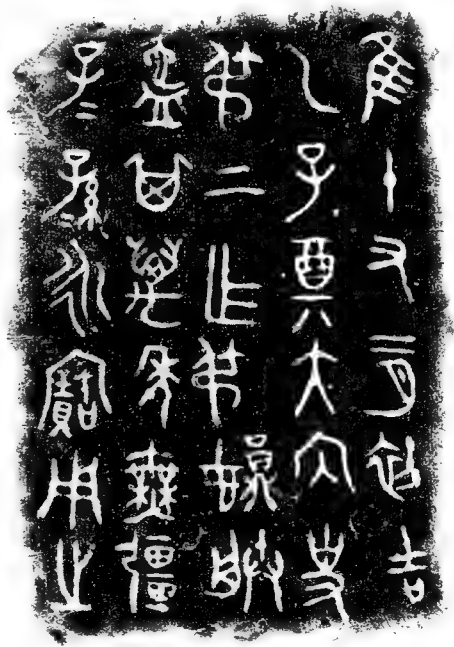 隹十又二月初吉
乙子奠大内史
弔上乍弔娟朕
匜其萬年無疆
子=孫=永寶用之